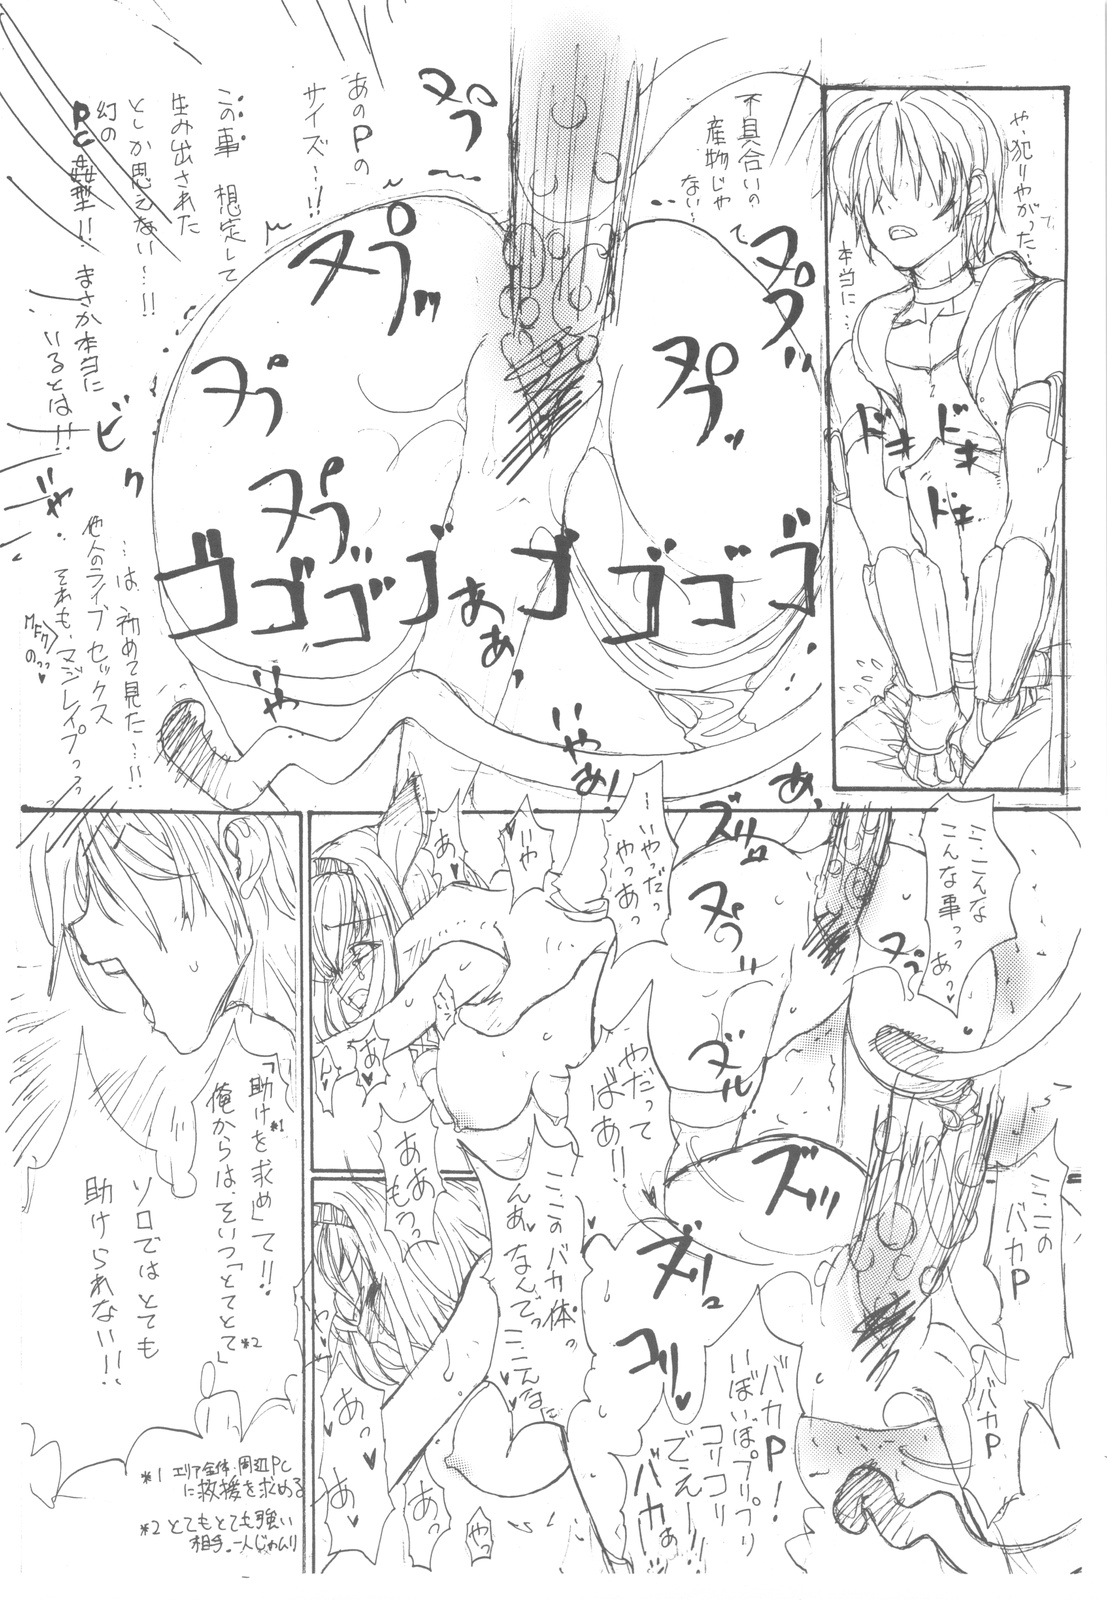 や、犯りやがった…
本当に…
ドキ
ドキ
ドキ
不具合いの
産物じゃ
ない…
あのPの
サイズ〜!!
この事 想定して
生み出された
としか思えない…!!
幻の
PC姦型!!
まさか本当に
いるとは!!
…は、初めて見た…!!
他人のライブセックス
それも、マジレイプっっっ
ヌプッ
ヌプ
ヌプッ
ビクッ
ゴゴゴゴゴゴゴゴ
あぁっ
あぁ、
いや
いやぁ!
あ、
こ…こんな
こんな事っっ あっ♥
…いやっだっ
やっあっ
いや
あ♥
ズリュ
ヌプッ
ヌプ
ズルッ
やだって
ばあ!!
あ♥
ん♥
ああっ
もうっ
こ…この
バカP
バカP
バカP!
いぼいぼプリプリ
コリコリ
でぇー!!
バカぁ
ズッ
ズリュ
コリッ♥
こ…このバカ体っ
んあ♥なんでっ
こ…こんなに
あっ♥
あ♥
あっ
やっ
「助けを求め」て!!
*1
俺からは、そいつ「とてとて」
*2
ソロではとても
助けられない!!
*1 エリア全体・周辺PC
に救援を求める
*2 とてもとても強い
相手。一人じゃムリ